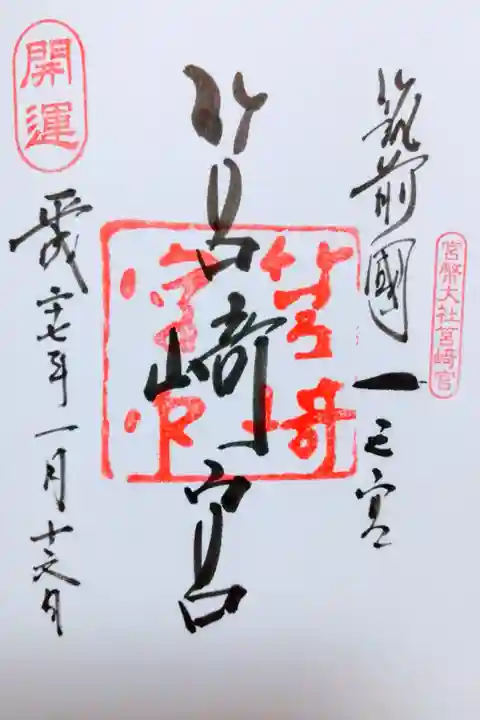 官幣大社筥崎宮
筑前國一之宮
筥崎宮
筥崎宮
開運
平成二十七年一月十六日